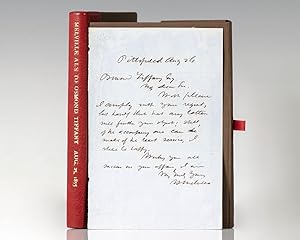 MELVILLE ALS TO OSMOND TIFFANY AUG. 24, 1855
Pittsfield Aug 24
Osmond Tiffany Esq
My dear Sir.
With pleasure
I comply with your request,
but hardly think that any letter
will further your object. Still,
if the accompany one can be
made of the least service, I
shall be happy.
Wishing you all
success in your affair I am
Very Truly Yours
H Melville